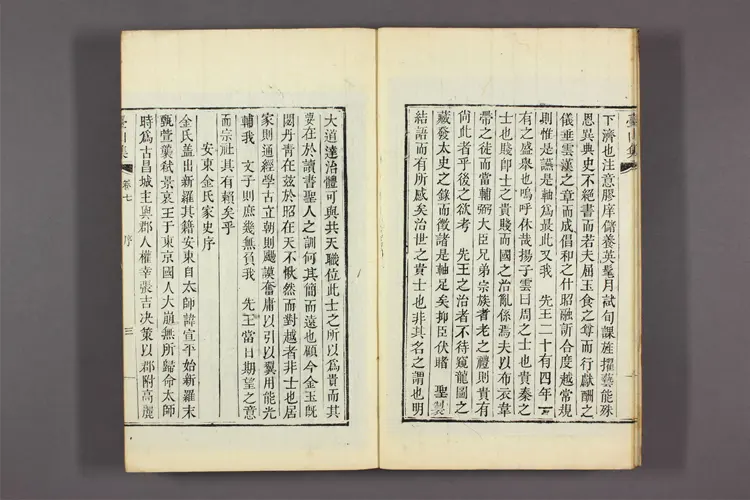 下濟也注意膠庠儲養英髦月試旬課旌擢藝能殊
恩異典史不絕書而若夫屈玉食之尊而行獻酬之
儀垂雲漢之章而成倡和之什昭融訢合度越常規
則惟是讌是軸爲最此又我 先王二十有四年
有之盛擧也嗚呼休哉揚子雲曰周之士也貴秦之
士也賤卽士之貴賤而國之治亂係焉夫以布衣韋
帶之徒而當輔弼大臣兄弟宗族耆老之禮則貴有
尚此者乎後之欲考 先王之治者不待窺龍圖之
藏發太史之錄而徵諸是軸足矣抑臣伏睹 聖製
結語而有所感矣治世之貴士也非其名之謂也明
臺山集
大道達治體可與共天職位此士之所以爲貴而其
要在於讀書聖人之訓何其簡而遠也顧今金玉旣
閟丹青在玆於昭在天不愀然而對越者非士也居
家則通經學古立朝則颺謨奮庸以引以翼用能光
輔我 文子則庶幾無負我 先王當日期望之意
而宗社其有賴矣乎
安東金氏家史序
金氏盖出新羅其籍安東自太師諱宣平始新羅末
甄萱弑景哀王于東京國人大崩無所歸命太師
時爲古昌城主與郡人權幸張吉决策以郡附高麗
臺山集
卷七
序
三